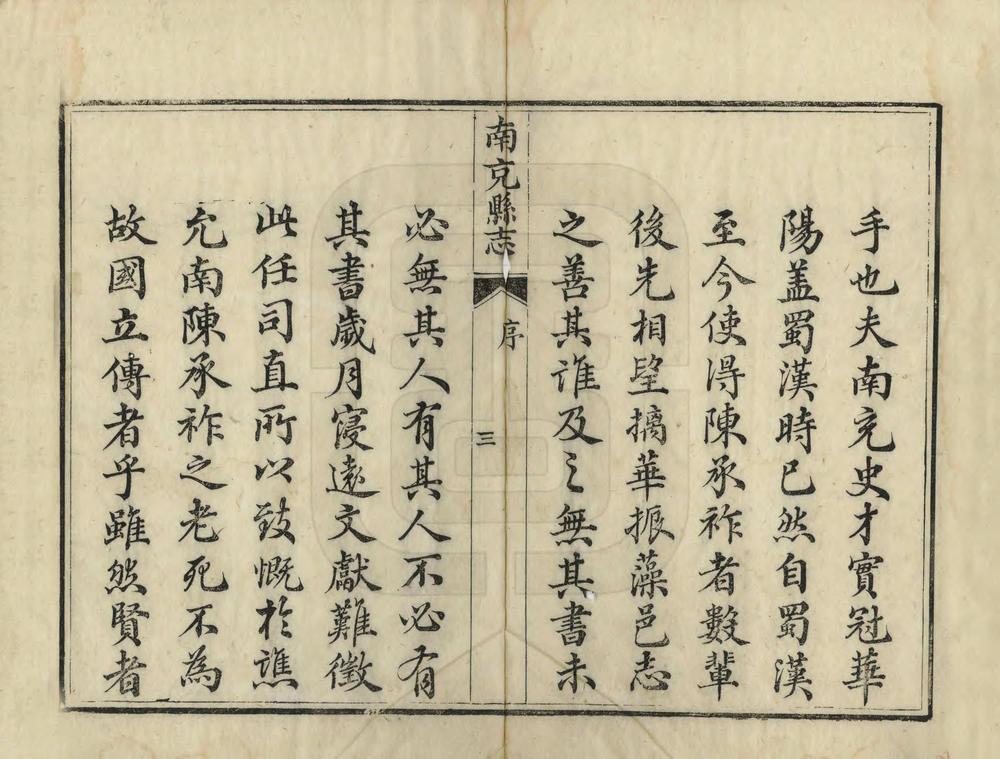 手也夫南充史才實冠華
陽蓋蜀漢時已然自蜀漢
至今使得陳承祚者數輩
後先相望摛華振藻邑志
之善其誰及之無其書未
南充縣志
序
三
必無其人有其人不必有
其書歲月寖遠文獻難徵
此任司直所以致慨於譙
允南陳承祚之老死不為
故國立傳者乎雖然賢者